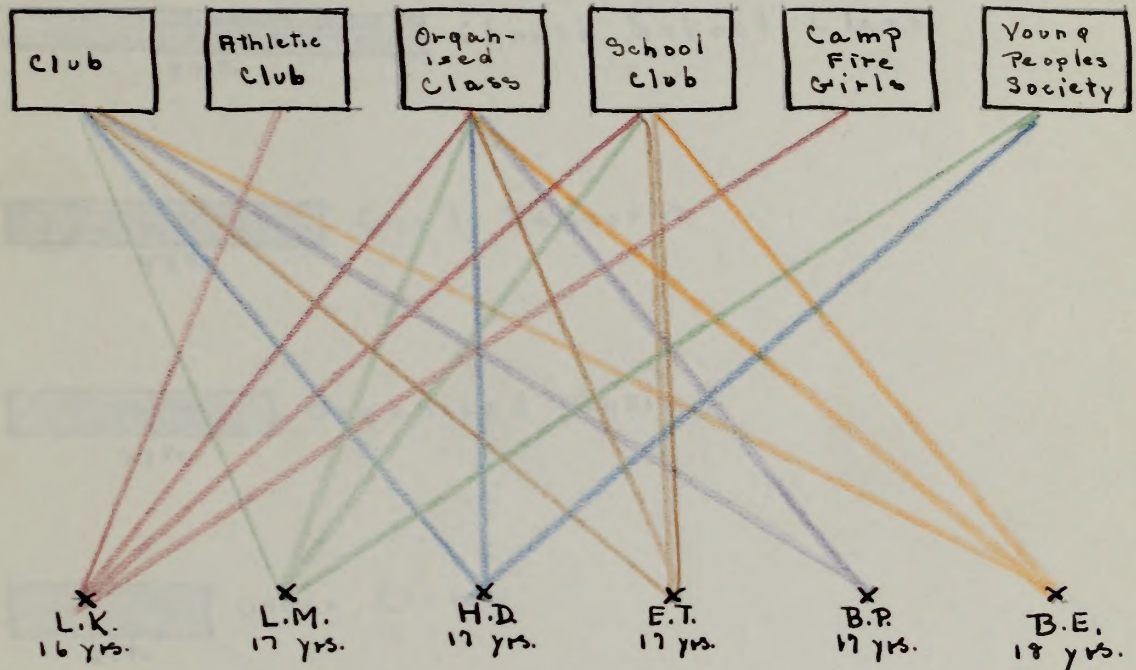 Club
Athletic
Club
Organ-
ised
Class
School
Club
Camp
Fire
Girls
Young
Peoples
Society
L.K.
16 yrs.
L.M.
17 yrs.
H.D.
17 yrs.
E.T.
17 yrs.
B.P.
17 yrs.
B.E.
18 yrs.